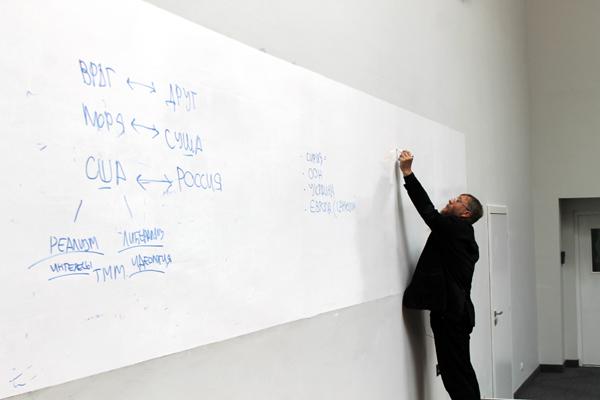 ВРАГ ↔ ДРУГ
МОРЯ ↔ СУША
США ↔ РОССИЯ
РЕАЛИЗМ ЛИБЕРАЛИЗМ
ИНТЕРЕСЫ ТММ ИДЕОЛОГИЯ
· СИРИЯ -
· ООН
· УКРАИНА
· ЕВРОПА (